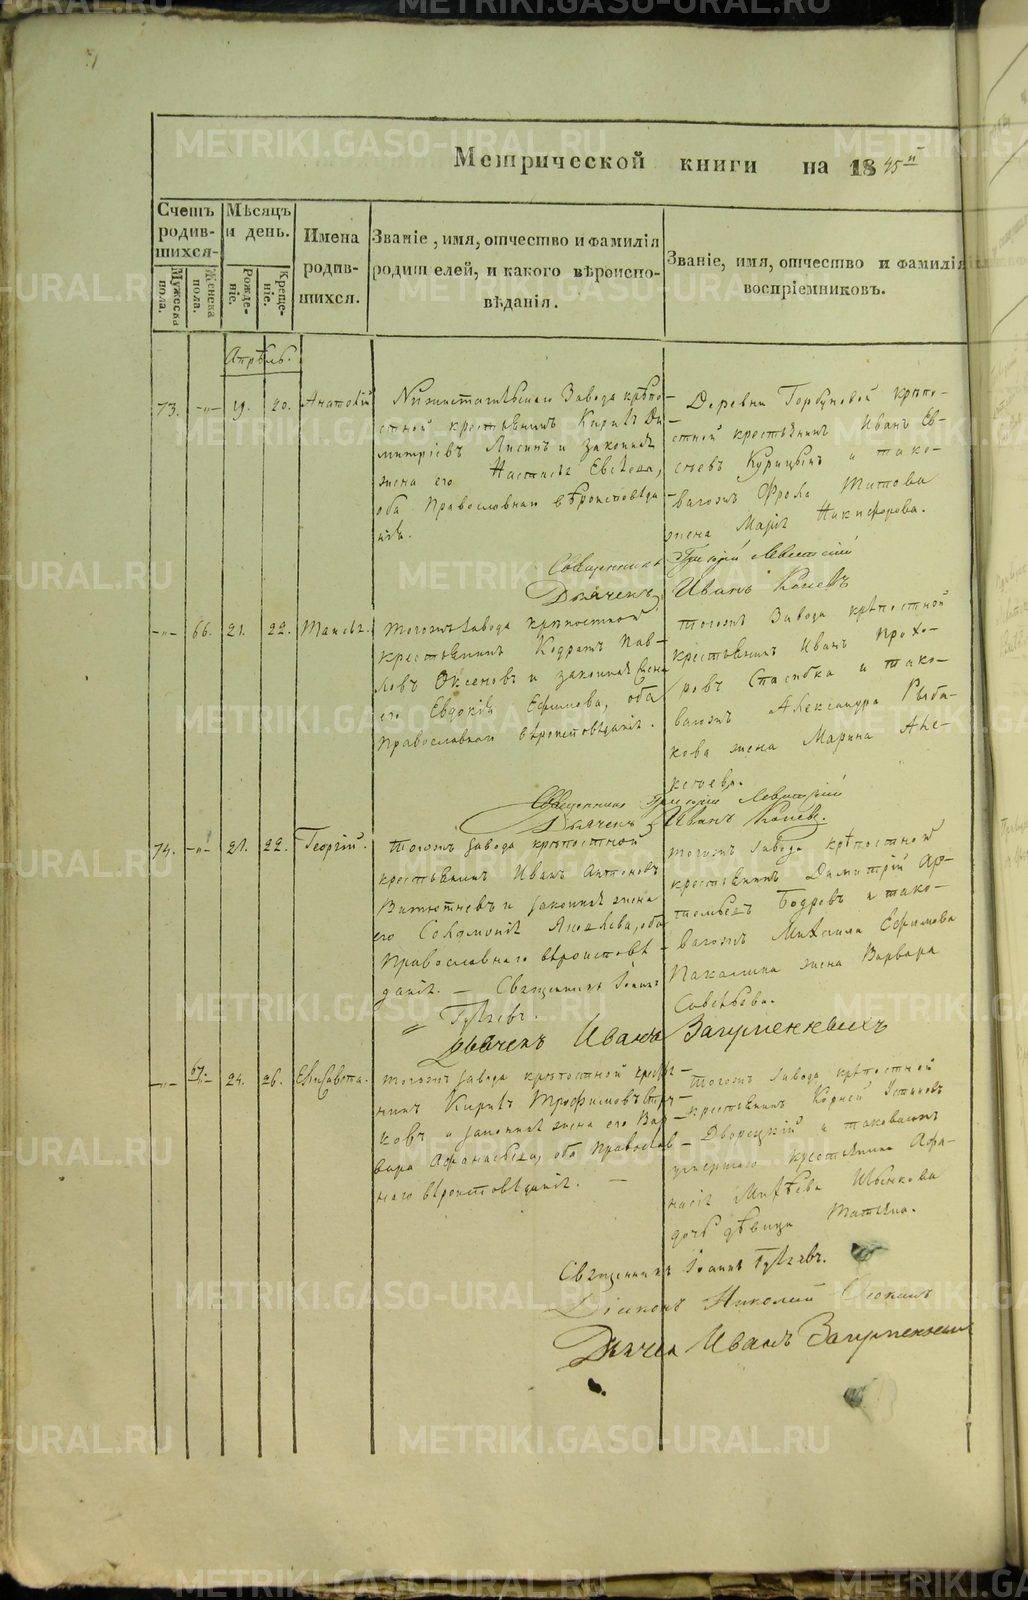 Метрической книги на 1845й
Счетъ родившихся.
Мужеска пола.
Женска пола.
Мѣсяцъ и день.
Рожденіе.
Крещеніе.
Имена родившихся.
Званіе, имя, отчество и фамилія родителей, и какого вѣроисповѣданія.
Званіе, имя, отчество и фамилія воспріемниковъ.
Апрѣль.
73. -"- 19. 20. Анатолій
Нижнетагильскаго Завода крѣпо-
стной крестьянинъ Кирилъ Ди
митріевъ Лисинъ и законная
жена его Настасья Евсѣева,
оба Православнаго вѣроисповѣда
нія.
Деревни Горбуновой крѣпо-
стной крестьянинъ Иванъ Ев-
сѣевъ Курицынъ и тако-
вагожъ Фрола Титова
жена Марія Никифорова.
Священникъ Григорій Левитскій
Дьячекъ Иванъ Коневъ
-"- 66. 21. 22.
Тогожъ Завода крѣпостной
крестьянинъ Кодратъ Пав-
ловъ Оксеновъ и законная жена
его Евдокія Ефимова, оба
Православнаго вѣроисповѣданія.
Тогожъ Завода крѣпостной
крестьянинъ Иванъ Прохо-
ровъ и тако-
вагожъ Александра Рыба-
кова жена Марина Але-
ксѣева.
Священникъ Григорій Левитскій
Дьячекъ Иванъ Коневъ.
74. -"- 21. 22. Георгій.
Тогожъ Завода крѣпостной
крестьянинъ Иванъ Антоновъ
и законная жена
его Соломонія Яковлева, оба
Православнаго вѣроисповѣ
данія. — Священникъ Іоаннъ
Тогожъ Завода крѣпостной
крестьянинъ Димитрій Ар-
темьевъ Бодровъ и тако-
вагожъ Михаила Ефимова
жена Варвара
Савельева.
Дьячекъ Иванъ
-"- 67. 24. 26. Елисавета.
Тогожъ Завода крѣпостной крестья-
нинъ Кирилъ Трофимовъ
ковъ и законная жена его Вар-
вара Афанасьева, оба Православ
наго вѣроисповѣданія. —
Тогожъ Завода крѣпостной
крестьянинъ Корнилъ Устиновъ
Дворецкій и таковагожъ
умершаго крестьянина Афа-
насія
дочь дѣвица Татьяна.
Священникъ Іоаннъ
Діаконъ Николай
Дьячекъ Иванъ
METRIKI.GASO-URAL.RU